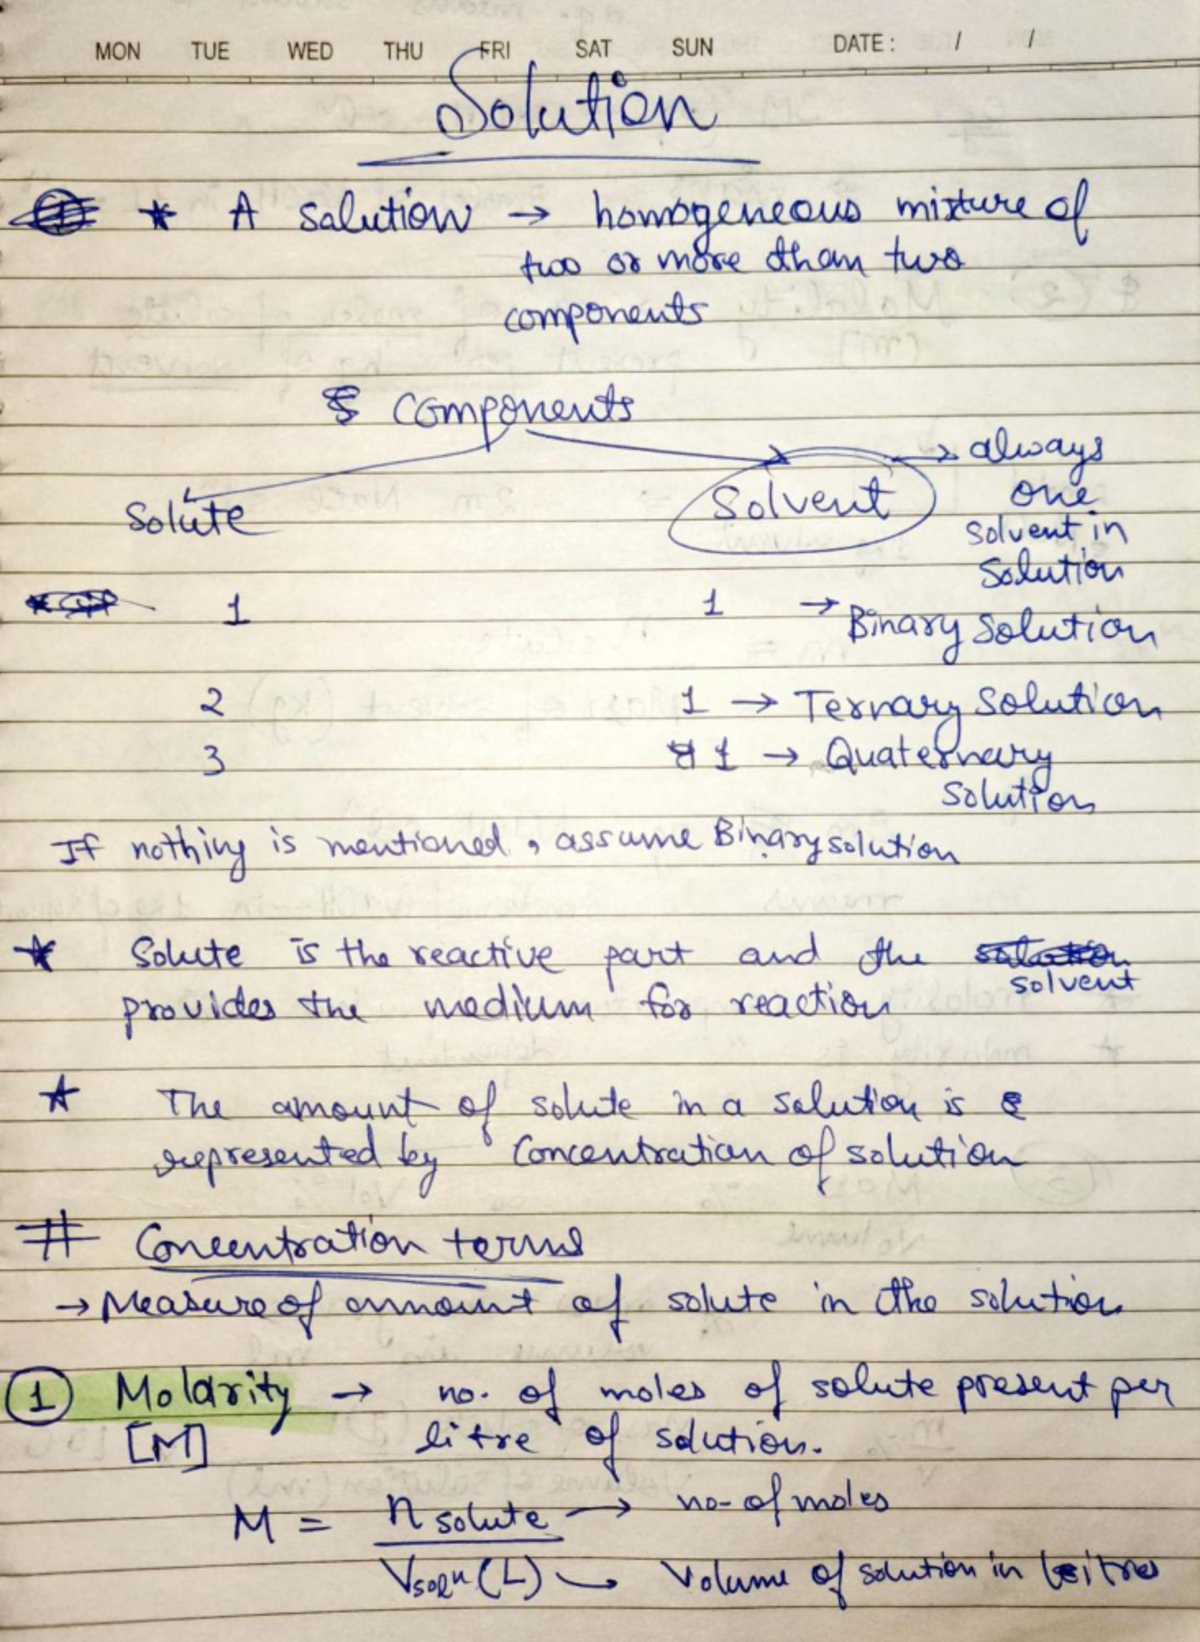 MON TUE WED THU FRI SAT SUN DATE: / /
Solution
* A solution → homogeneous mixture of
two or more than two
components
Components
→ always
Solute Solvent one
solvent in
solution
1 1 → Binary solution
2 1 → Ternary solution
3 1 → Quaternary
solution
If nothing is mentioned, assume Binary solution
* Solute is the reactive part and the solution
solvent
provides the medium for reaction
* The amount of solute in a solution is
represented by Concentration of solution
# Concentration terms
→ Measure of ammount of solute in the solution
1 Molarity → no. of moles of solute present per
[M] litre of solution.
M = n solute → no- of moles
Vsoln (L) → Volume of solution in